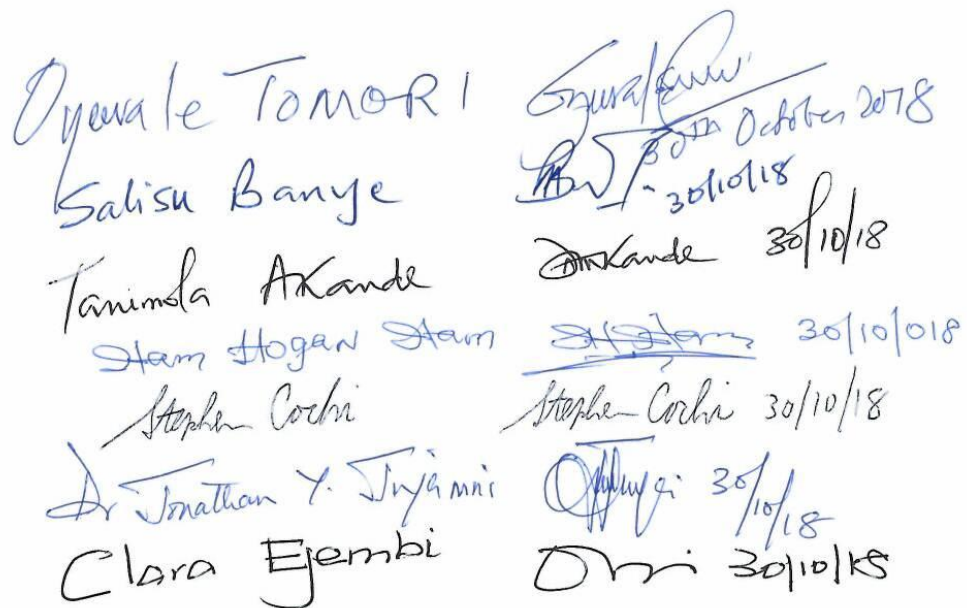 Oyewale TOMORI
30th October 2018
Salisu Banye 30/10/18
Tanimola Akande Akande 30/10/18
Hogan 30/10/018
Stephen Cochi Stephen Cochi 30/10/18
Dr Jonathan Y. 30/10/18
Clara Ejembi 30/10/18